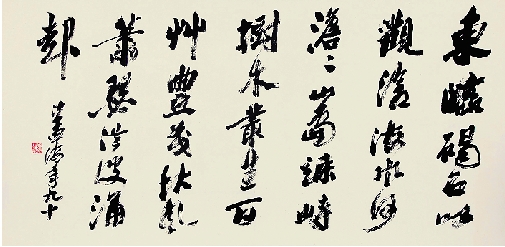 東臨碣石以
觀滄海水何
澹〻山島竦峙
樹木叢生百
艸豐茂秋風
蕭瑟洪波涌
起
九十